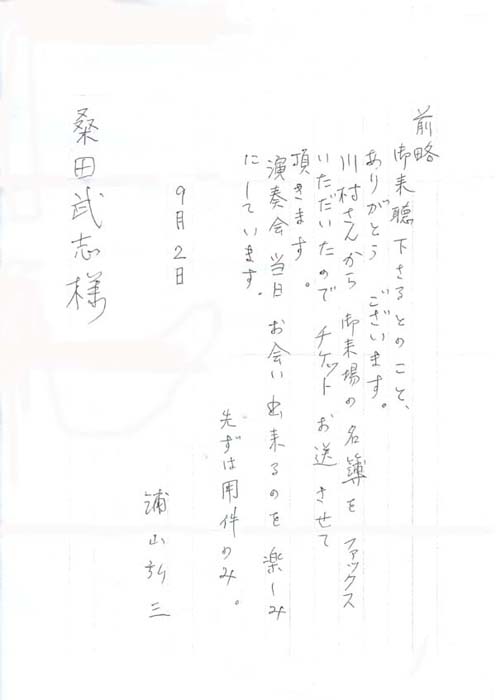 前略
御来聴下さるとのこと、
ありがとうございます。
川村さんから御来場の名簿をファックス
いただいたのでチケットお送させて
頂きます。
演奏会当日お会い出来るのを楽しみ
にしています。
先ずは用件のみ。
9月2日
浦山弘三
桑田武志様